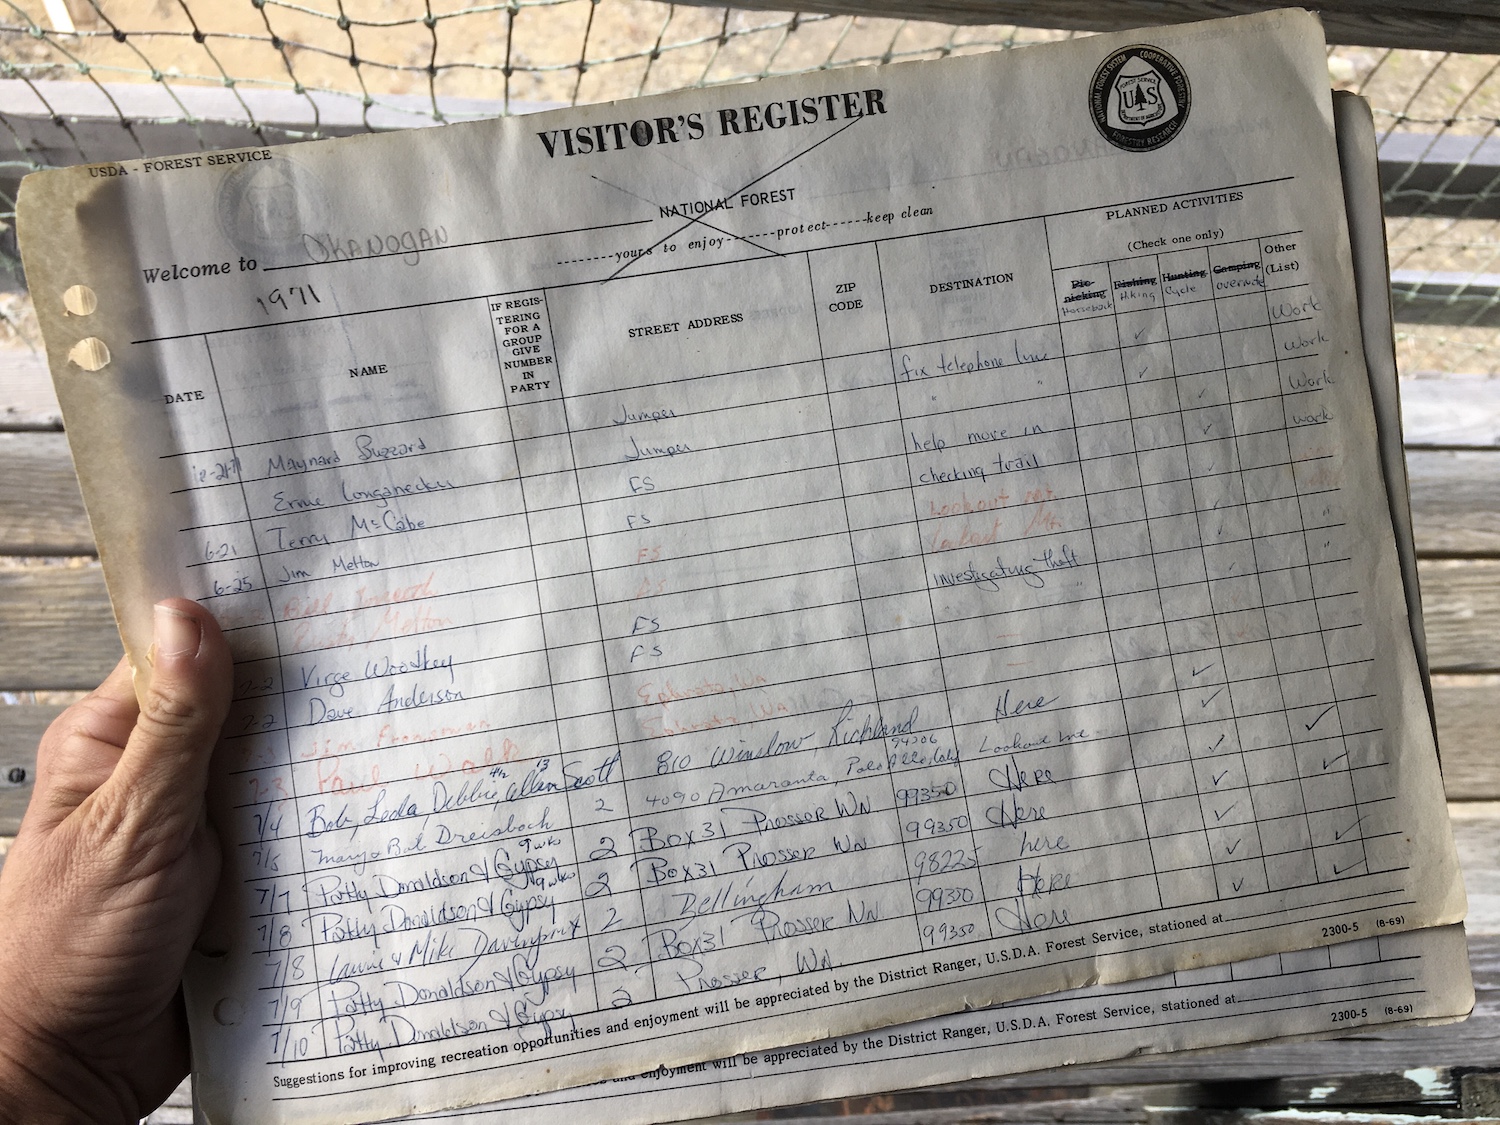 USDA - FOREST SERVICE
VISITOR'S REGISTER
NATIONAL FOREST SYSTEM COOPERATIVE FORESTRY FORESTRY RESEARCH
FOREST SERVICE
U S
DEPARTMENT OF AGRICULTURE
Welcome to OKANOGAN NATIONAL FOREST
--------yours to enjoy-------protect------keep clean
1971
PLANNED ACTIVITIES
(Check one only)
DATE NAME IF REGIS- TERING FOR A GROUP GIVE NUMBER IN PARTY STREET ADDRESS ZIP CODE DESTINATION Pic- nicking Fishing Hunting Camping Other (List)
Horseback Hiking Cycle overnite
Maynard Buzzard Jumper fix telephone line Work
Ernie Longanecker Jumper " Work
6-21 Terry McCabe FS help move in Work
6-25 Jim Melton FS checking trail work
Bill FS Lookout Mt.
Rusty Melton FS Lookout Mtn
7-2 Virge Woodkey FS investigating theft "
7-2 Dave Anderson FS " "
Jim Ephrata, Wn —
7-3 Paul Ephrata, Wn —
7/4 Bob, Leda, Debbie, Allen Scott 13 810 Winslow, Richland Here
7/5 Mary & Bob Dreisbach 2 4090 Amaranta, Palo Alto, Calif 94306 Lookout Mt
7/7 Patty Donaldson & Gypsy 9 wks 2 Box 31 Prosser WN 99350 Here
7/8 Patty Donaldson & Gypsy 9 wks 2 Box 31 Prosser Wn 99350 Here
7/8 Laurie & Mike Davenport 2 Bellingham 98225 here
7/9 Patty Donaldson & Gypsy 2 Box 31 Prosser Wn 99350 Here
7/10 Patty Donaldson & Gypsy 2 Prosser, Wn. 99350 Here
Suggestions for improving recreation opportunities and enjoyment will be appreciated by the District Ranger, U.S.D.A. Forest Service, stationed at
2300-5 (8-69)
and enjoyment will be appreciated by the District Ranger, U.S.D.A. Forest Service, stationed at
2300-5 (8-69)